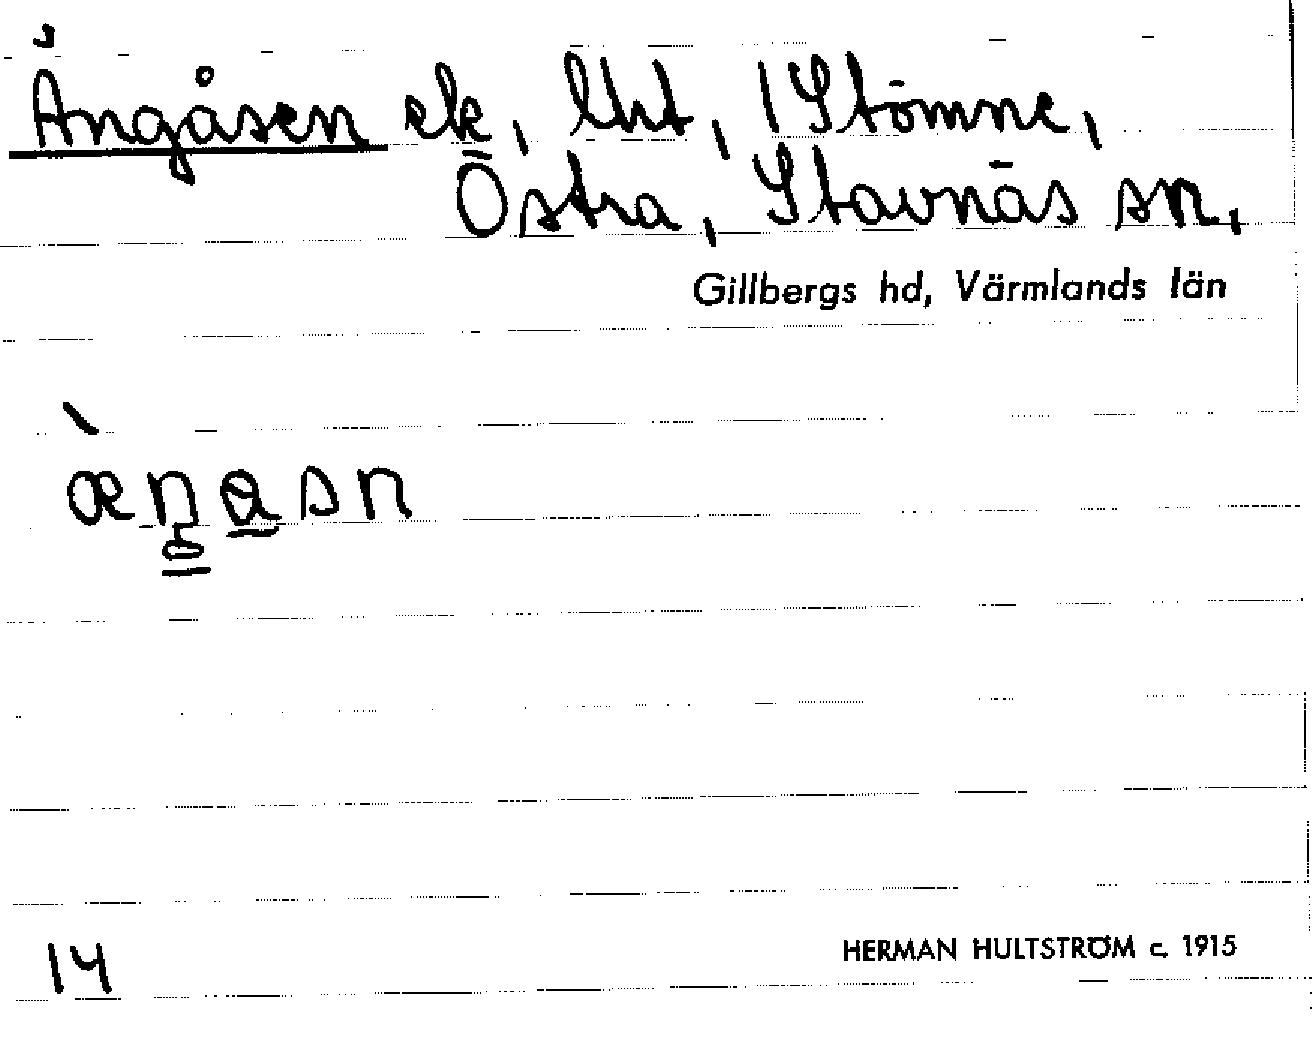 Ängåsen ek, lht, 1 Stömne,
Östra, Stavnäs sn,
Gillbergs hd, Värmlands län
14
HERMAN HULTSTRÖM c. 1915